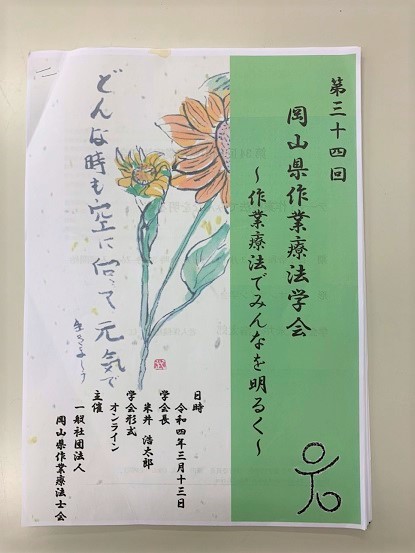 第三十四回
岡山県作業療法学会
～作業療法でみんなを明るく～
どんな時も空に向って元気で
日時
令和四年三月十三日
学会長
米井 浩太郎
学会形式
オンライン
主催
一般社団法人
岡山県作業療法士会